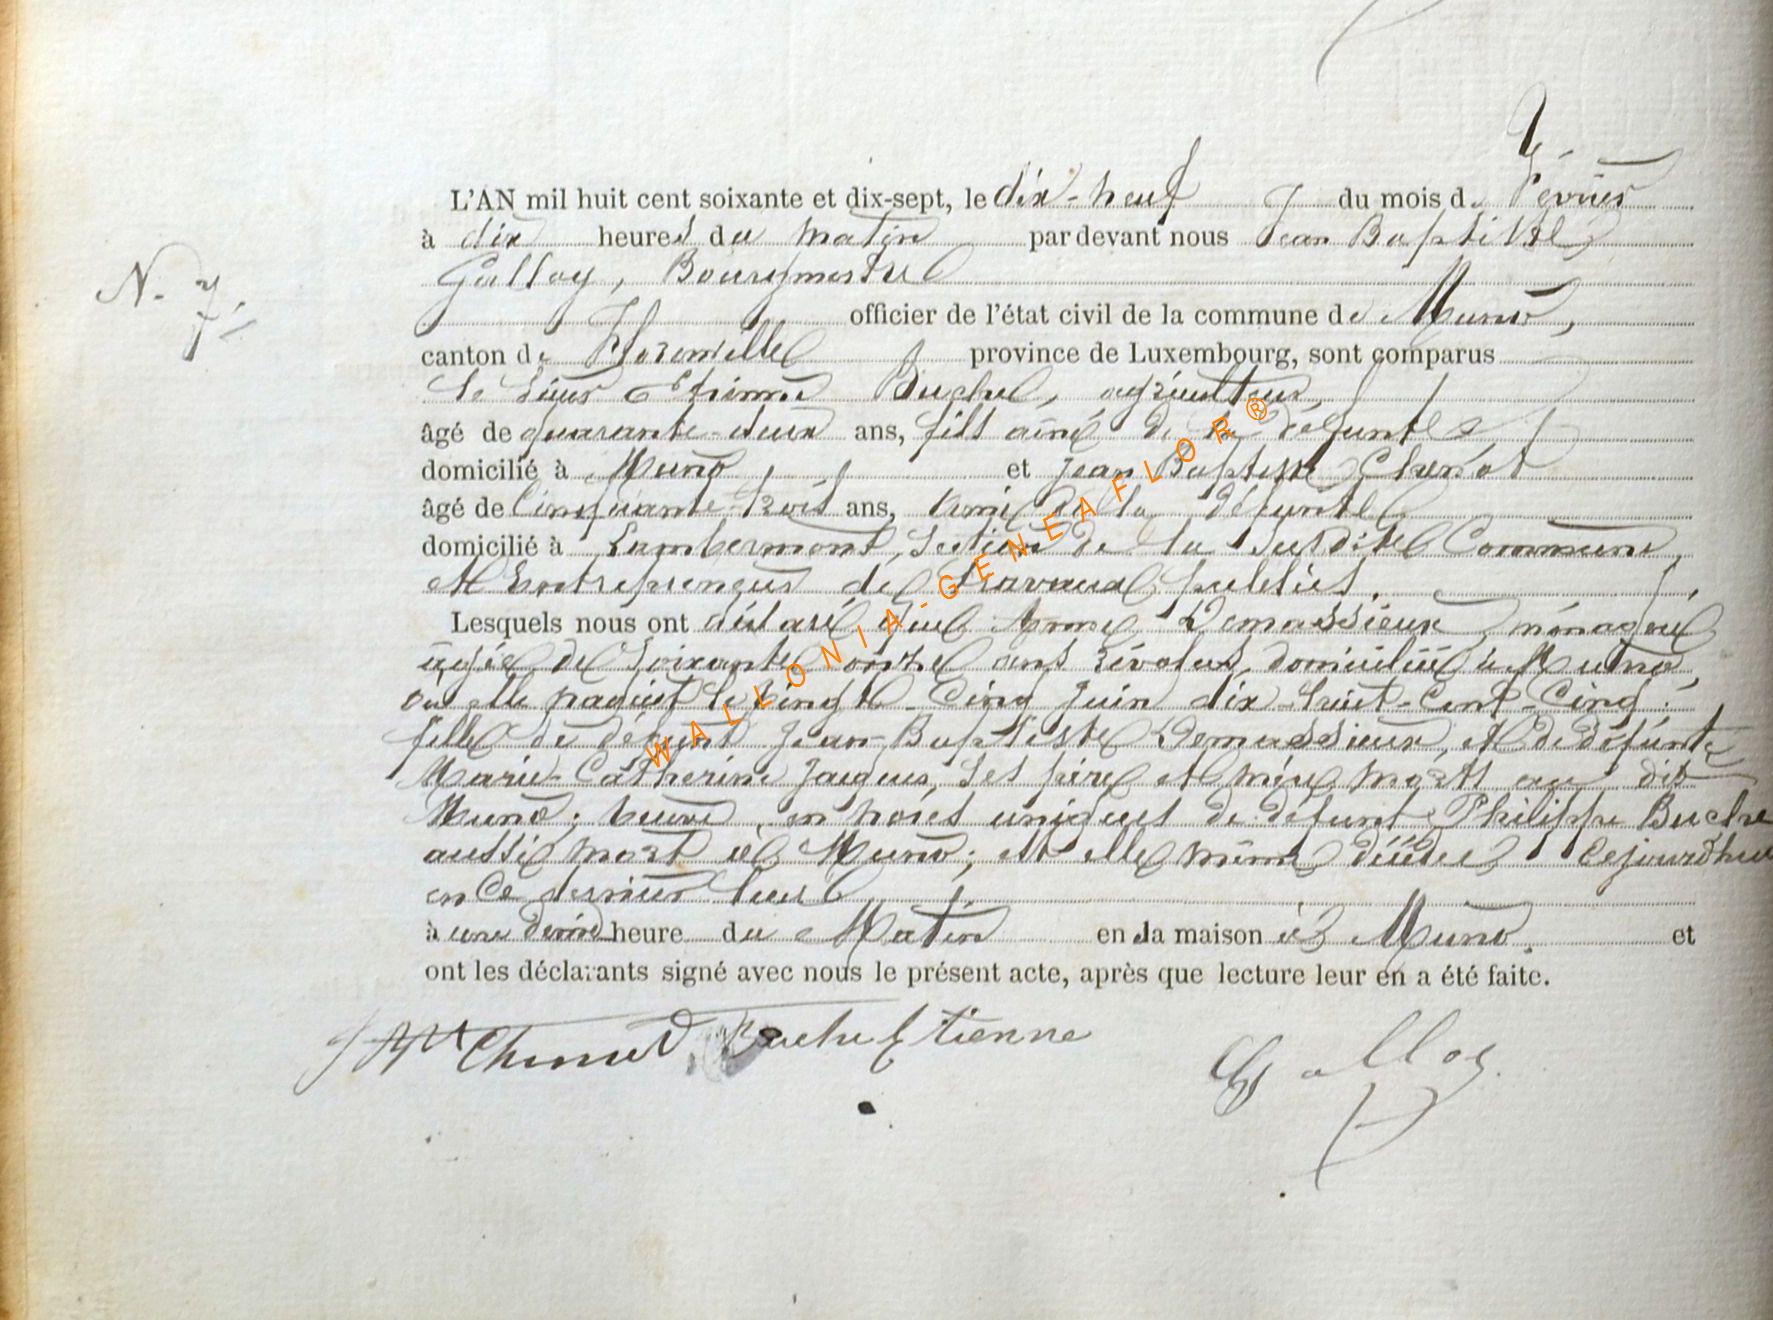 L'AN mil huit cent soixante et dix-sept, le dix-neuf du mois de Février
à dix heures du matin par devant nous Jean Baptiste
Galloy, Bourgmestre
N. 7.
officier de l'état civil de la commune de Muno,
canton de Florenville province de Luxembourg, sont comparus
le Sieur Etienne Buche, agriculteur,
âgé de quarante-deux ans, fils ainé de la défunte,
domicilié à Muno, et Jean Baptiste Chenot
âgé de Cinquante-trois ans, Ami de la défunte
domicilié à Lambermont, Section de la susdite Commune,
et Entrepreneur de travaux publics.
Lesquels nous ont déclaré que Anne Demassieux, ménagère
âgée de soixante onze ans révolus, domiciliée à Muno,
où elle naquit le vingt-cinq Juin dix-huit-cent-cinq;
fille de défunt Jean-Baptiste Demassieux, et de défunte
Marie-Catherine Jacques, ses père et mère morts au dit
Muno; veuve en noces uniques de défunt Philippe Buche
aussi mort à Muno; est elle même décédée cejourd'hui
en ce dernier lieu
à une demie heure du Matin en la maison à Muno. et
ont les déclarants signé avec nous le présent acte, après que lecture leur en a été faite.
Chenot Buche Etienne
Galloy
WALLONIA-GENEAFLOR®